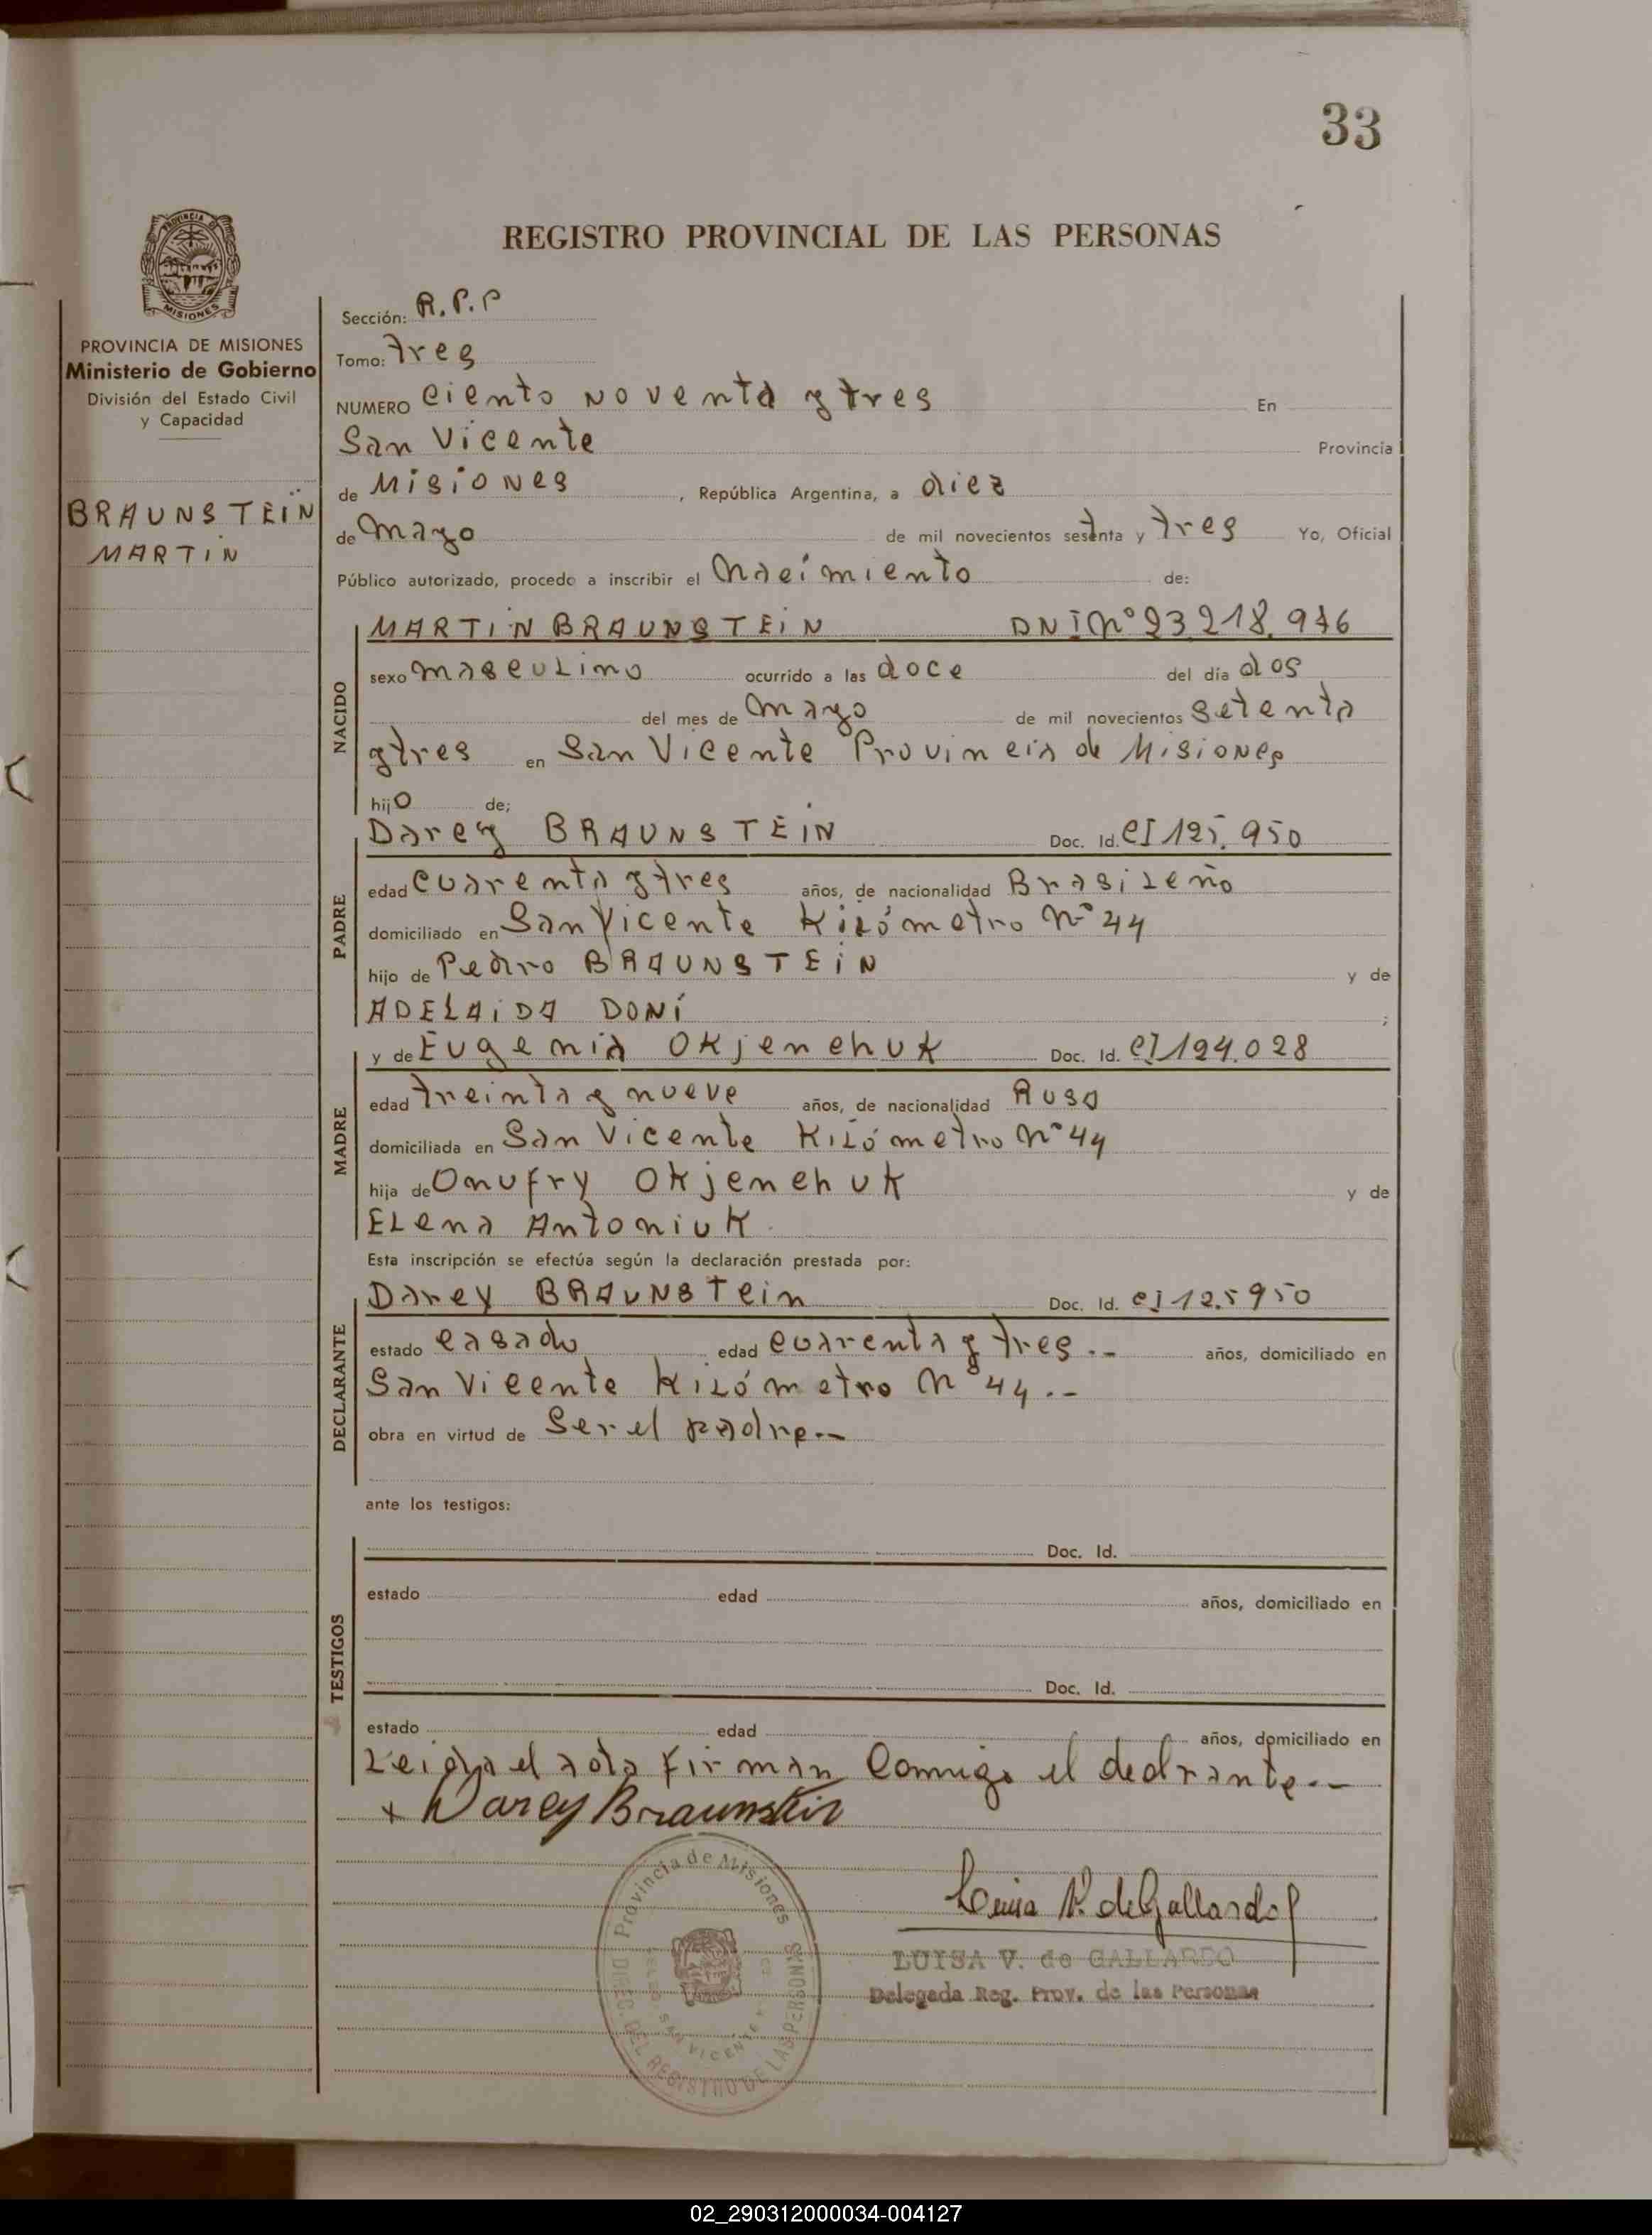 33
REGISTRO PROVINCIAL DE LAS PERSONAS
PROVINCIA DE MISIONES
Ministerio de Gobierno
División del Estado Civil
y Capacidad
BRAUNSTEIN
MARTIN
Sección: R.P.P
Tomo: tres
NUMERO ciento noventa y tres En
San Vicente Provincia
de Misiones, República Argentina, a diez
de mayo de mil novecientos setenta y tres Yo, Oficial
Público autorizado, procedo a inscribir el nacimiento de:
NACIDO
MARTIN BRAUNSTEIN DNI Nº 23.218.976
sexo masculino ocurrido a las doce del día dos
del mes de mayo de mil novecientos setenta
y tres en San Vicente Provincia de Misiones
hijo de;
PADRE
Darcy BRAUNSTEIN Doc. Id. CI 125.950
edad cuarenta y tres años, de nacionalidad Brasileño
domiciliado en San Vicente Kilómetro Nº 44
hijo de Pedro BRAUNSTEIN y de
ADELAIDA DONI ;
MADRE
y de Eugenia Okjenchuk Doc. Id. CI 194.028
edad treinta y nueve años, de nacionalidad Rusa
domiciliada en San Vicente Kilómetro Nº 44
hija de Onufry Okjenchuk y de
Elena Antoniuk.
Esta inscripción se efectúa según la declaración prestada por:
DECLARANTE
Darcy BRAUNSTEIN Doc. Id. CI 125950
estado casado edad cuarenta y tres.- años, domiciliado en
San Vicente Kilómetro Nº 44.-
obra en virtud de Ser el padre.-
ante los testigos:
TESTIGOS
Doc. Id.
estado edad años, domiciliado en
Doc. Id.
estado edad años, domiciliado en
Leida el acta firman Comigo el declrante.-
x Darcy Braunstein
Luisa V. de Gallardo
LUISA V. de GALLARDO
Delegada Reg. Prov. de las Personas
Provincia de Misiones
DIREC. DEL REGISTRO DE LAS PERSONAS
SAN VICENTE
02_290312000034-004127